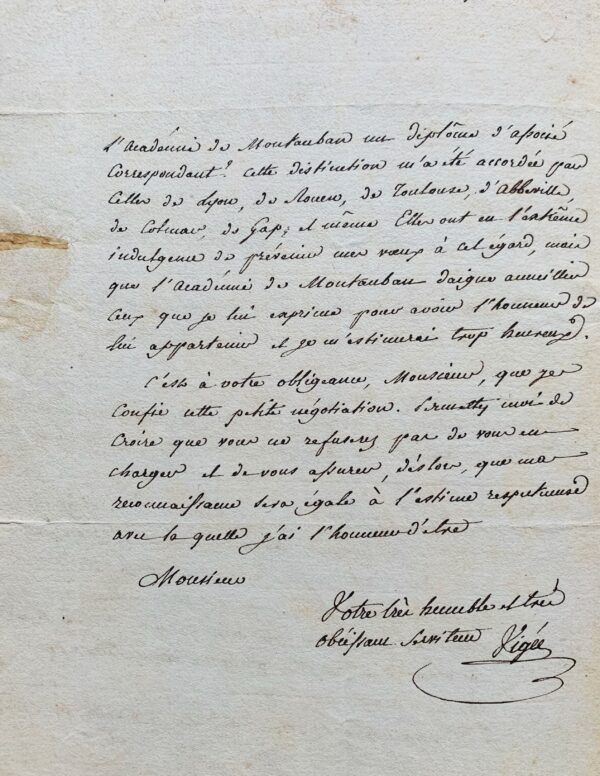 l'Académie de Montauban un diplôme d'associé
Correspondant? cette distinction m'a été accordée par
Celles de Lyon, de Rouen, de Toulouse, d'Abbeville
de Colmar, de Gap; et même Elles ont eu l'extrême
indulgence de prévenir mes vœux à cet égard, mais
que l'Académie de Montauban daigne accueillir
ceux que je lui exprime pour avoir l'honneur de
lui appartenir et je m'estimerai trop heureux.
C'est à votre obligeance, Monsieur, que je
Confie cette petite négociation. Permettez moi de
Croire que vous ne refuserez pas de vous en
charger et de vous assurer, dèslors, que ma
reconnaissance sera égale à l'estime respectueuse
avec la quelle j'ai l'honneur d'être
Monsieur
Votre très humble et très
obéissant serviteur Vigée